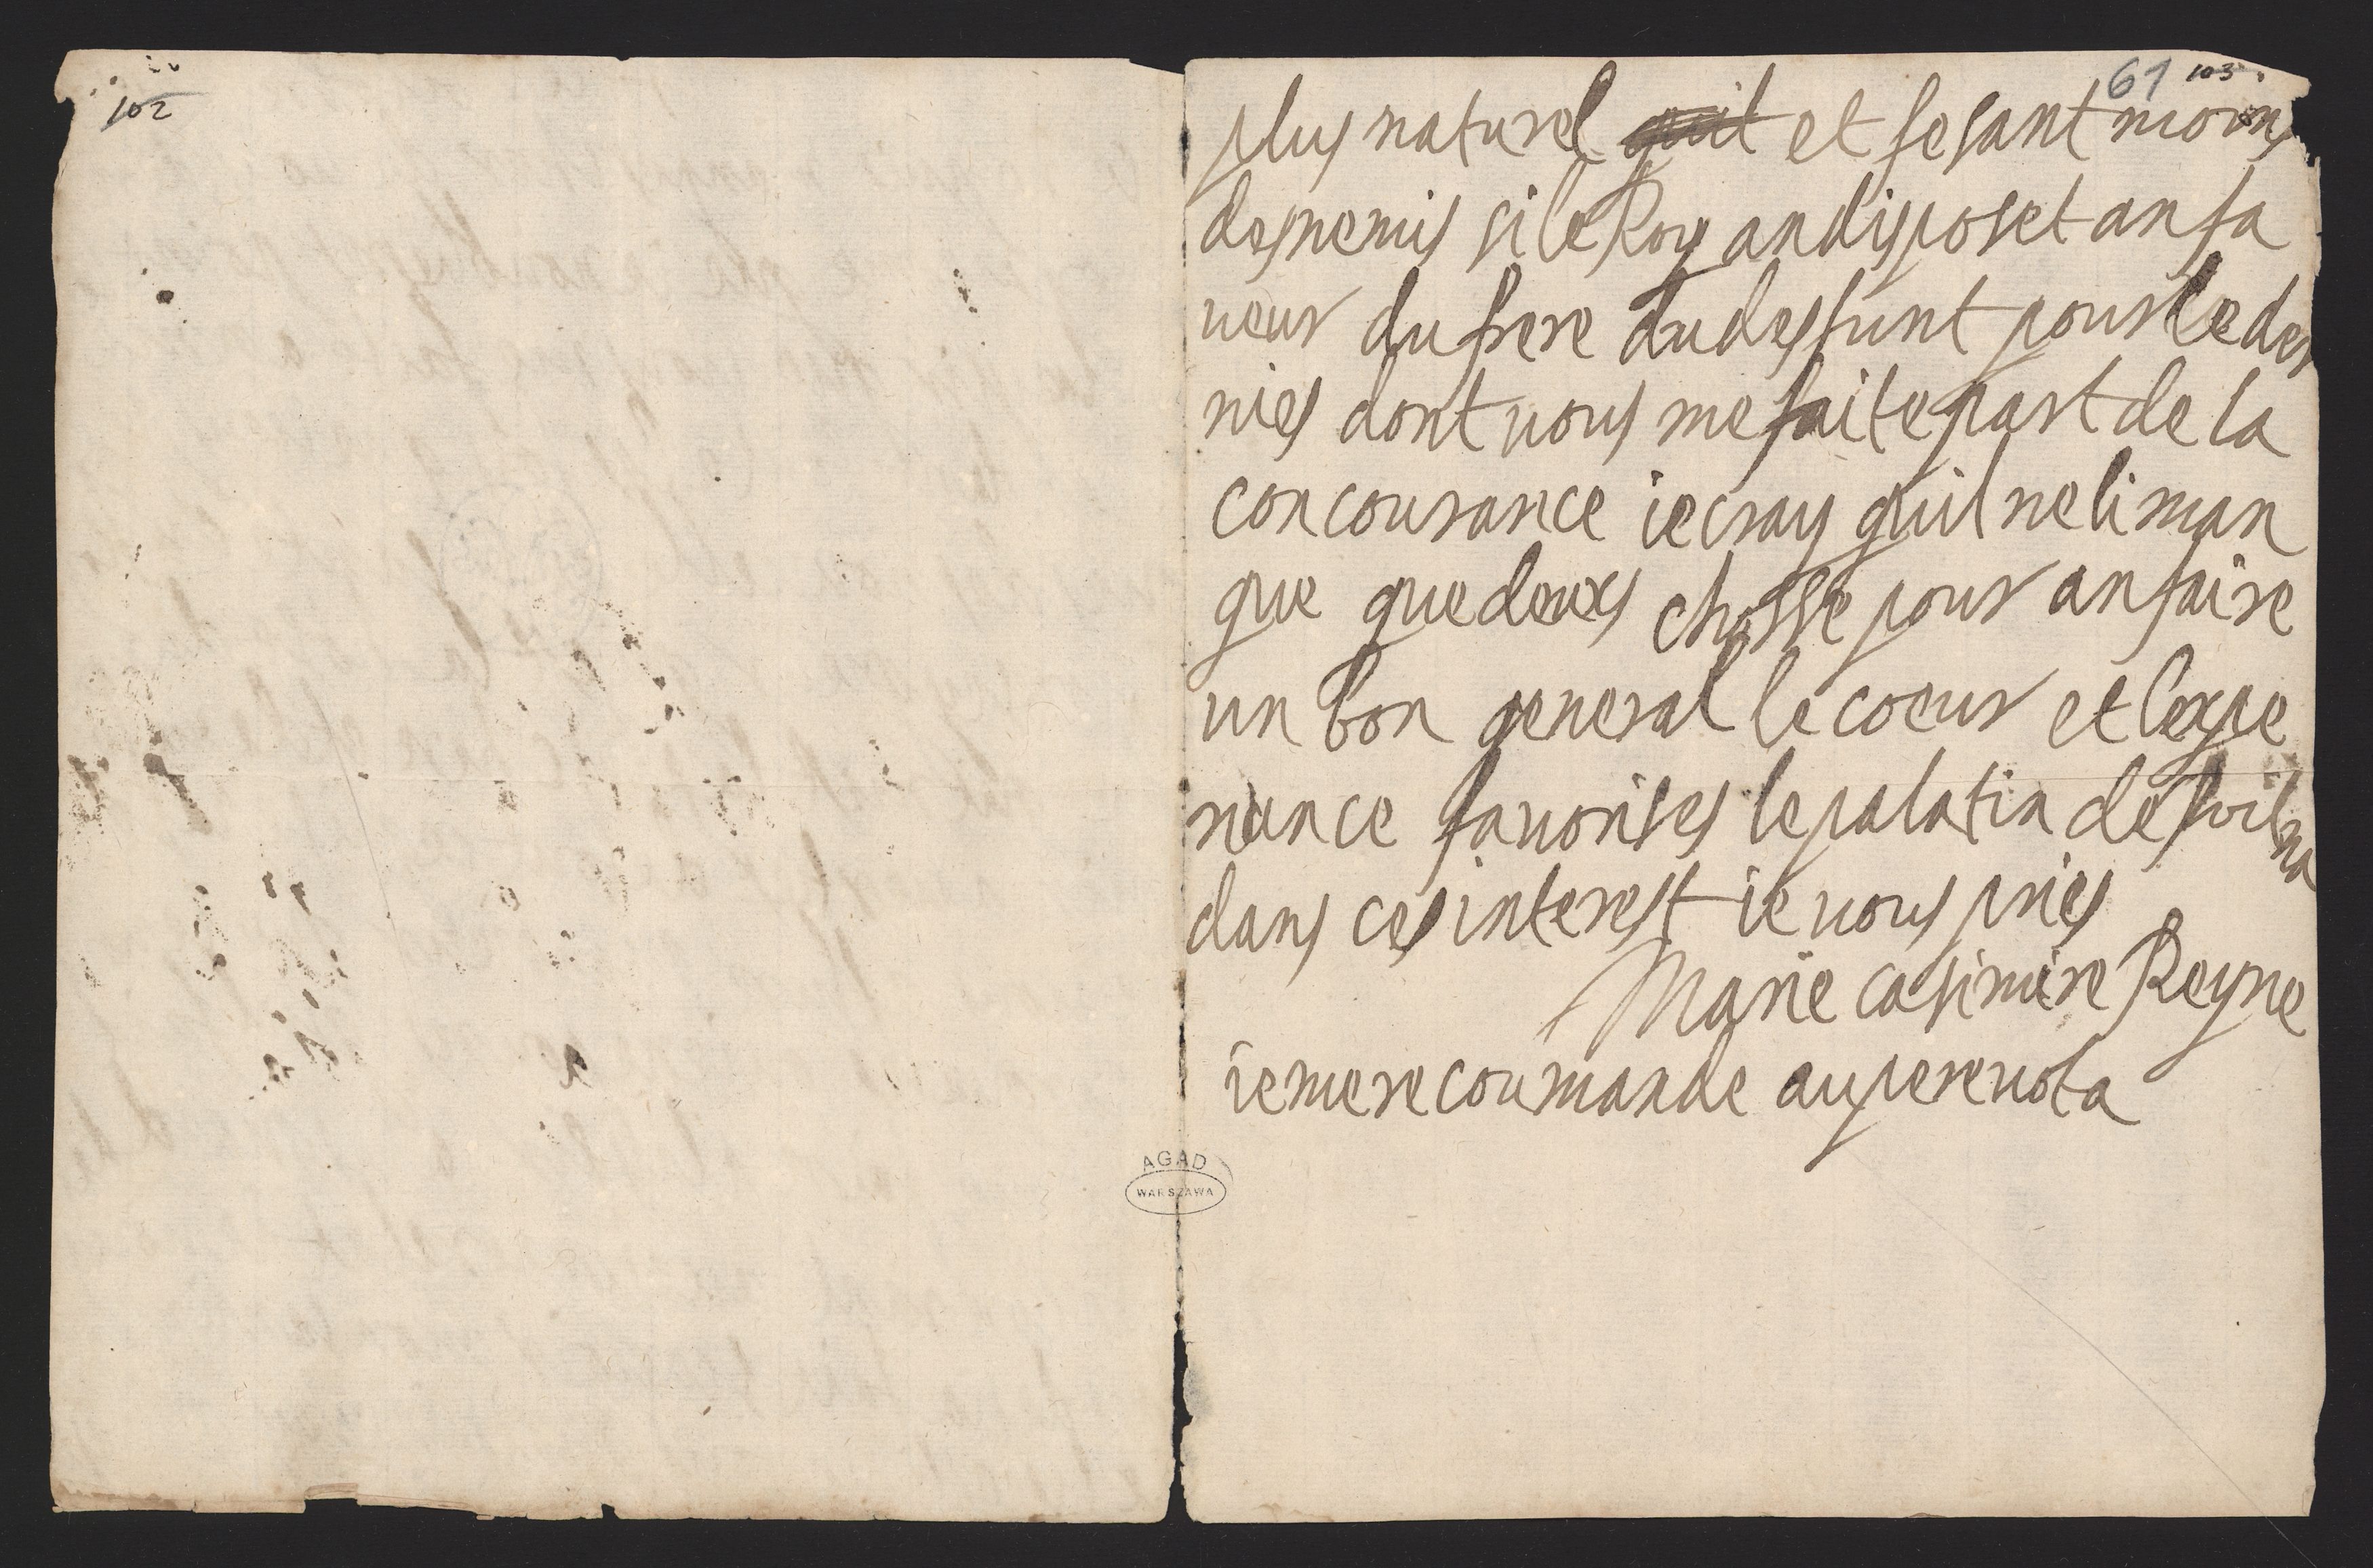 102
61 103
plus naturel quil et fesant moins
desnemis si le Roy andisposet anfa
ueur du frere dudesfunt pour le der
nies dont uous me faite part de la
concourance ie cray quil neliman
que que deuxs chosse pour anfaire
un bon general le coeur et lexpe
riance fauorises le palatin de vilna
dans ces interest ie uous pries
Marie casimire Reyne
iemerecoummande aupereuota
AGAD
WARSZAWA